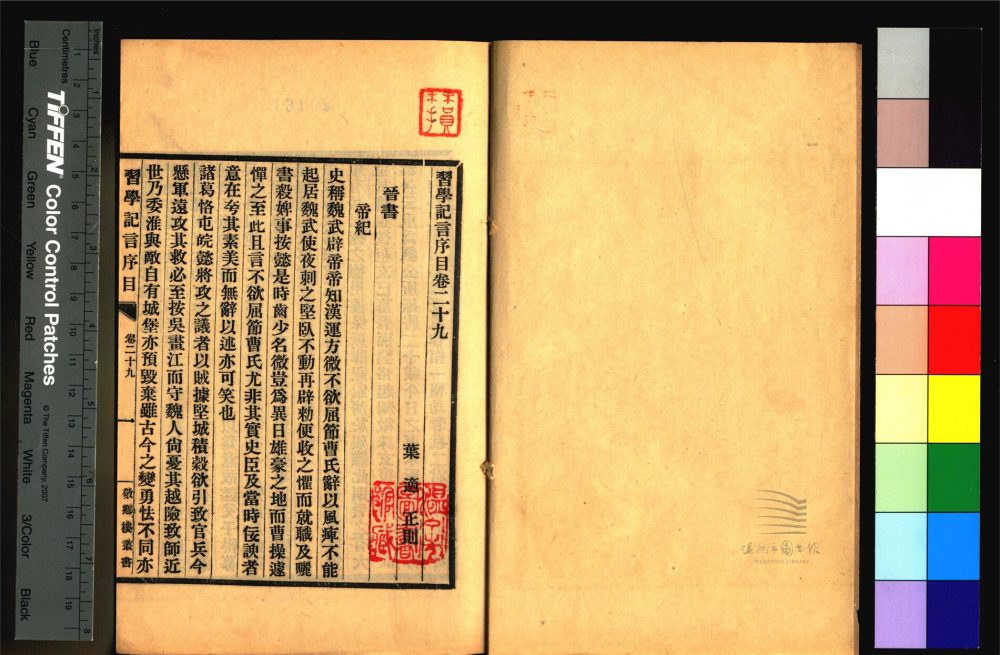 習學記言序目卷二十九
葉適正則
晉書
帝紀
史稱魏武辟帝帝知漢運方微不欲屈節曹氏辭以風痺不能
起居魏武使夜刺之堅臥不動再辟勑便收之懼而就職及曬
書殺婢事按懿是時齒少名微豈為異日雄豪之地而曹操遽
憚之至此且言不欲屈節曹氏尤非其實史臣及當時佞諛者
意在夸其素美而無辭以述亦可笑也
諸葛恪屯皖懿將攻之議者以賊據堅城積穀欲引致官兵今
懸軍遠攻其救必至按吳畫江而守魏人尙憂其越險致師近
世乃委淮與敵自有城堡亦預毀棄雖古今之變勇怯不同亦
習學記言序目
卷二十九
一
敬鄉樓叢書
溫州市圖書館
WENZHOU LIBRARY
Inches
Centimetres
TIFFEN Color Control Patches
© The Tiffen Company, 2007
Blue Cyan Green Yellow Red Magenta White 3/Color Black
1 2 3 4 5 6 7 8 9 10 11 12 13 14 15 16 17 18 19
1 2 3 4 5 6 7 8